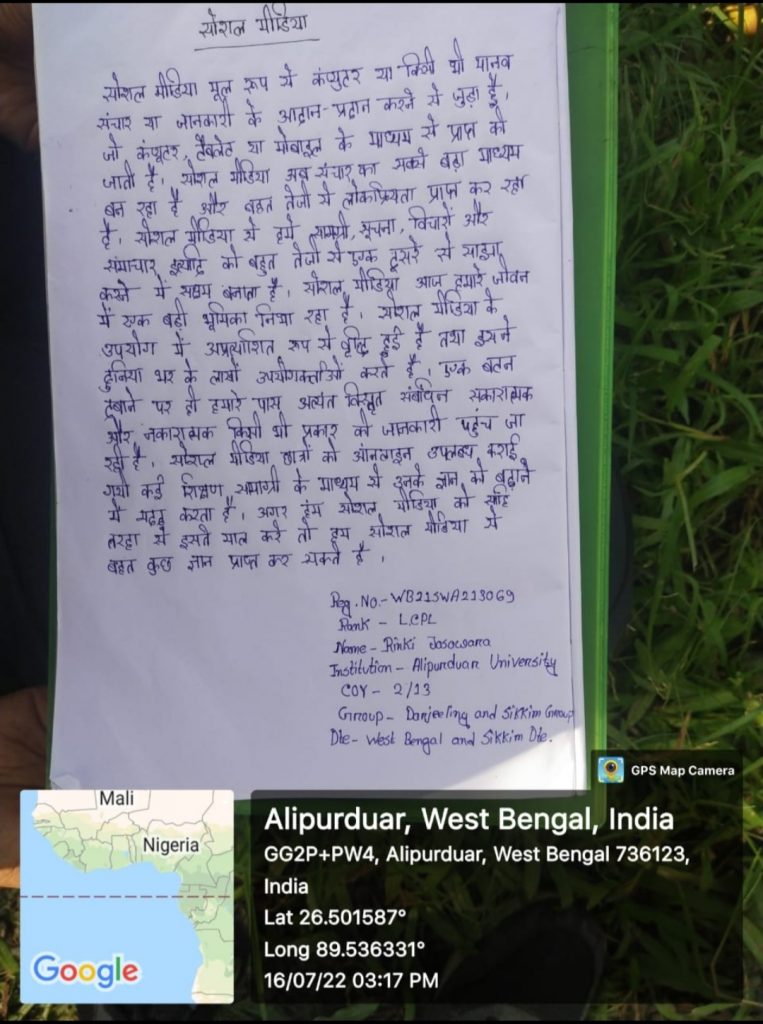 सोशल मीडिया
सोशल मीडिया मूल रूप से कंप्युटर या किसी भी मानव
संचार या जानकारी के आदान-प्रदान करने से जुड़ा है,
जो कंप्यूटर, टैबलेट या मोबाइल के माध्यम से प्राप्त की
जाती है। सोशल मीडिया अब संचार का सबसे बड़ा माध्यम
बन रहा है और बहुत तेजी से लोकप्रियता प्राप्त कर रही
है, सोशल मीडिया से हमे सामग्री, सूचना, विचारों और
समाचार इत्यादि को बहुत तेजी से एक दूसरे से साझा
करने में सक्षम बनाता है, सोशल मीडिया आज हमारे जीवन
में एक बड़ी भूमिका निभा रहा है, सोशल मीडिया के
उपयोग में अप्रत्याशित रूप से वृद्धि हुई है तथा इसने
दुनिया भर के लाखों करते है, एक बटन
दबाने पर ही हमारे पास अत्यंत विस्तृत संबंधित सकारात्मक
और नकारात्मक किसी भी प्रकार की जानकारी पहुंच जा
रही है, सोशल मीडिया छात्रों को ऑनलाइन उपलब्ध कराई
गयी कई शिक्षण सामाग्री के माध्यम से उनके ज्ञान को बढ़ाने
में मदद करता है, अगर हम सोशल मीडिया को सही
तरहा से इसते माल करे तो हम सोशल मीडिया से
बहुत कुछ ज्ञान प्राप्त कर सकते है,
Reg. No.- WB21SWA213069
Rank - LCPL
Name - Rinki
Institution - Alipurduar University
COY - 2/13
Group - Darjeeling and Sikkim Group
Dte - West Bengal and Sikkim Dte.
GPS Map Camera
Mali
Nigeria
Google
Alipurduar, West Bengal, India
GG2P+PW4, Alipurduar, West Bengal 736123,
India
Lat 26.501587°
Long 89.536331°
16/07/22 03:17 PM